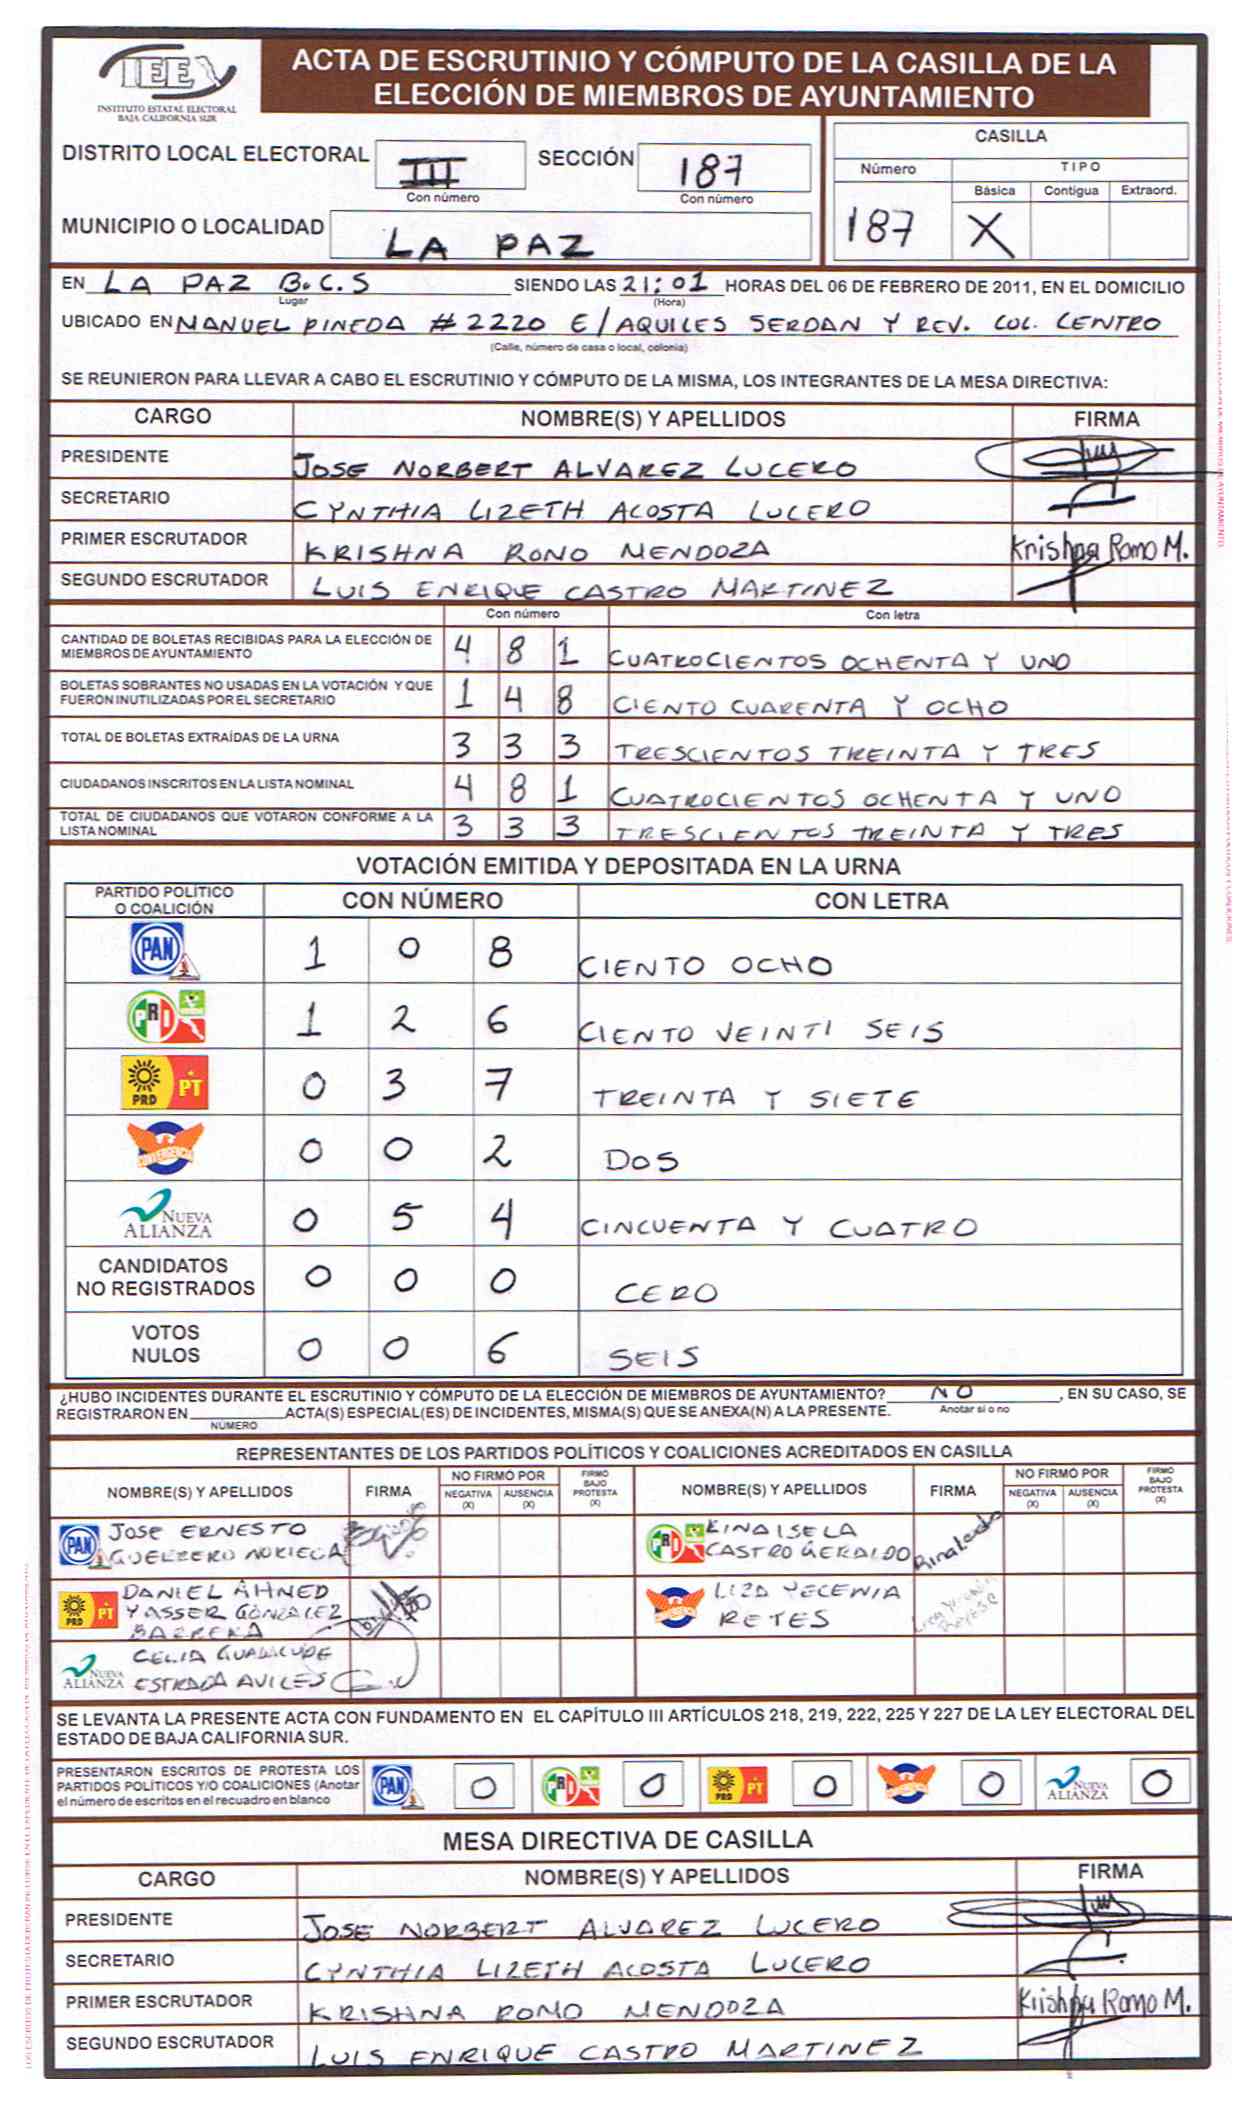 IEE
INSTITUTO ESTATAL ELECTORAL
BAJA CALIFORNIA SUR
ACTA DE ESCRUTINIO Y CÓMPUTO DE LA CASILLA DE LA
ELECCIÓN DE MIEMBROS DE AYUNTAMIENTO
DISTRITO LOCAL ELECTORAL III SECCIÓN 187
Con número Con número
MUNICIPIO O LOCALIDAD LA PAZ
CASILLA
Número TIPO
Básica Contigua Extraord.
187 X
EN LA PAZ B.C.S SIENDO LAS 21:01 HORAS DEL 06 DE FEBRERO DE 2011, EN EL DOMICILIO
Lugar (Hora)
UBICADO EN MANUEL PINEDA # 2220 E/AQUILES SERDAN Y REV. COL. CENTRO
(Calle, número de casa o local, colonia)
SE REUNIERON PARA LLEVAR A CABO EL ESCRUTINIO Y CÓMPUTO DE LA MISMA, LOS INTEGRANTES DE LA MESA DIRECTIVA:
CARGO NOMBRE(S) Y APELLIDOS FIRMA
PRESIDENTE JOSE NORBERT ALVAREZ LUCERO
SECRETARIO CYNTHIA LIZETH ACOSTA LUCERO
PRIMER ESCRUTADOR KRISHNA ROMO MENDOZA Krishna Romo M.
SEGUNDO ESCRUTADOR LUIS ENRIQUE CASTRO MARTINEZ
Con número Con letra
CANTIDAD DE BOLETAS RECIBIDAS PARA LA ELECCIÓN DE
MIEMBROS DE AYUNTAMIENTO 4 8 1 CUATROCIENTOS OCHENTA Y UNO
BOLETAS SOBRANTES NO USADAS EN LA VOTACIÓN Y QUE
FUERON INUTILIZADAS POR EL SECRETARIO 1 4 8 CIENTO CUARENTA Y OCHO
TOTAL DE BOLETAS EXTRAÍDAS DE LA URNA 3 3 3 TRESCIENTOS TREINTA Y TRES
CIUDADANOS INSCRITOS EN LA LISTA NOMINAL 4 8 1 CUATROCIENTOS OCHENTA Y UNO
TOTAL DE CIUDADANOS QUE VOTARON CONFORME A LA
LISTA NOMINAL 3 3 3 TRESCIENTOS TREINTA Y TRES
VOTACIÓN EMITIDA Y DEPOSITADA EN LA URNA
PARTIDO POLÍTICO
O COALICIÓN CON NÚMERO CON LETRA
PAN 1 0 8 CIENTO OCHO
PRI 1 2 6 CIENTO VEINTI SEIS
PRD PT 0 3 7 TREINTA Y SIETE
CONVERGENCIA 0 0 2 DOS
NUEVA ALIANZA 0 5 4 CINCUENTA Y CUATRO
CANDIDATOS
NO REGISTRADOS 0 0 0 CERO
VOTOS
NULOS 0 0 6 SEIS
¿HUBO INCIDENTES DURANTE EL ESCRUTINIO Y CÓMPUTO DE LA ELECCIÓN DE MIEMBROS DE AYUNTAMIENTO? NO, EN SU CASO, SE
Anotar si o no
REGISTRARON EN ACTA(S) ESPECIAL(ES) DE INCIDENTES, MISMA(S) QUE SE ANEXA(N) A LA PRESENTE.
NÚMERO
REPRESENTANTES DE LOS PARTIDOS POLÍTICOS Y COALICIONES ACREDITADOS EN CASILLA
NOMBRE(S) Y APELLIDOS FIRMA NO FIRMÓ POR NEGATIVA (X) AUSENCIA (X) FIRMÓ BAJO PROTESTA (X) NOMBRE(S) Y APELLIDOS FIRMA NO FIRMÓ POR NEGATIVA (X) AUSENCIA (X) FIRMÓ BAJO PROTESTA (X)
PAN JOSE ERNESTO
GUERRERO NORIEGA
PRI RINA ISELA
CASTRO GERALDO
PRD PT DANIEL AHMED
YASSER GONZALEZ
BARRERA
LIZA YECENIA
RETES
NUEVA ALIANZA CELIA GUADALUPE
ESTRADA AVILES
SE LEVANTA LA PRESENTE ACTA CON FUNDAMENTO EN EL CAPÍTULO III ARTÍCULOS 218, 219, 222, 225 Y 227 DE LA LEY ELECTORAL DEL
ESTADO DE BAJA CALIFORNIA SUR.
PRESENTARON ESCRITOS DE PROTESTA LOS
PARTIDOS POLÍTICOS Y/O COALICIONES (Anotar
el número de escritos en el recuadro en blanco
PAN 0 PRI 0 PRD PT 0 0 NUEVA ALIANZA 0
MESA DIRECTIVA DE CASILLA
CARGO NOMBRE(S) Y APELLIDOS FIRMA
PRESIDENTE JOSE NORBERT ALVAREZ LUCERO
SECRETARIO CYNTHIA LIZETH ACOSTA LUCERO
PRIMER ESCRUTADOR KRISHNA ROMO MENDOZA Krishna Romo M.
SEGUNDO ESCRUTADOR LUIS ENRIQUE CASTRO MARTINEZ